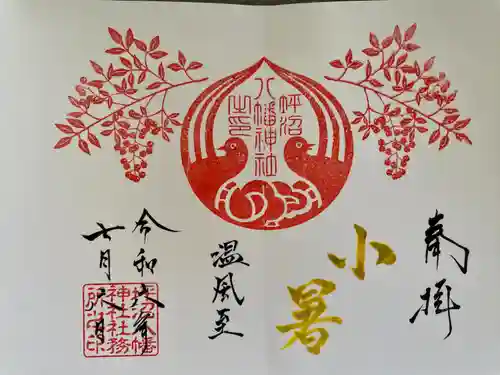 奉拝
小暑
坪沼
八幡神社
之印
温風至
令和
七月
坪沼八幡
神社社務
所之印